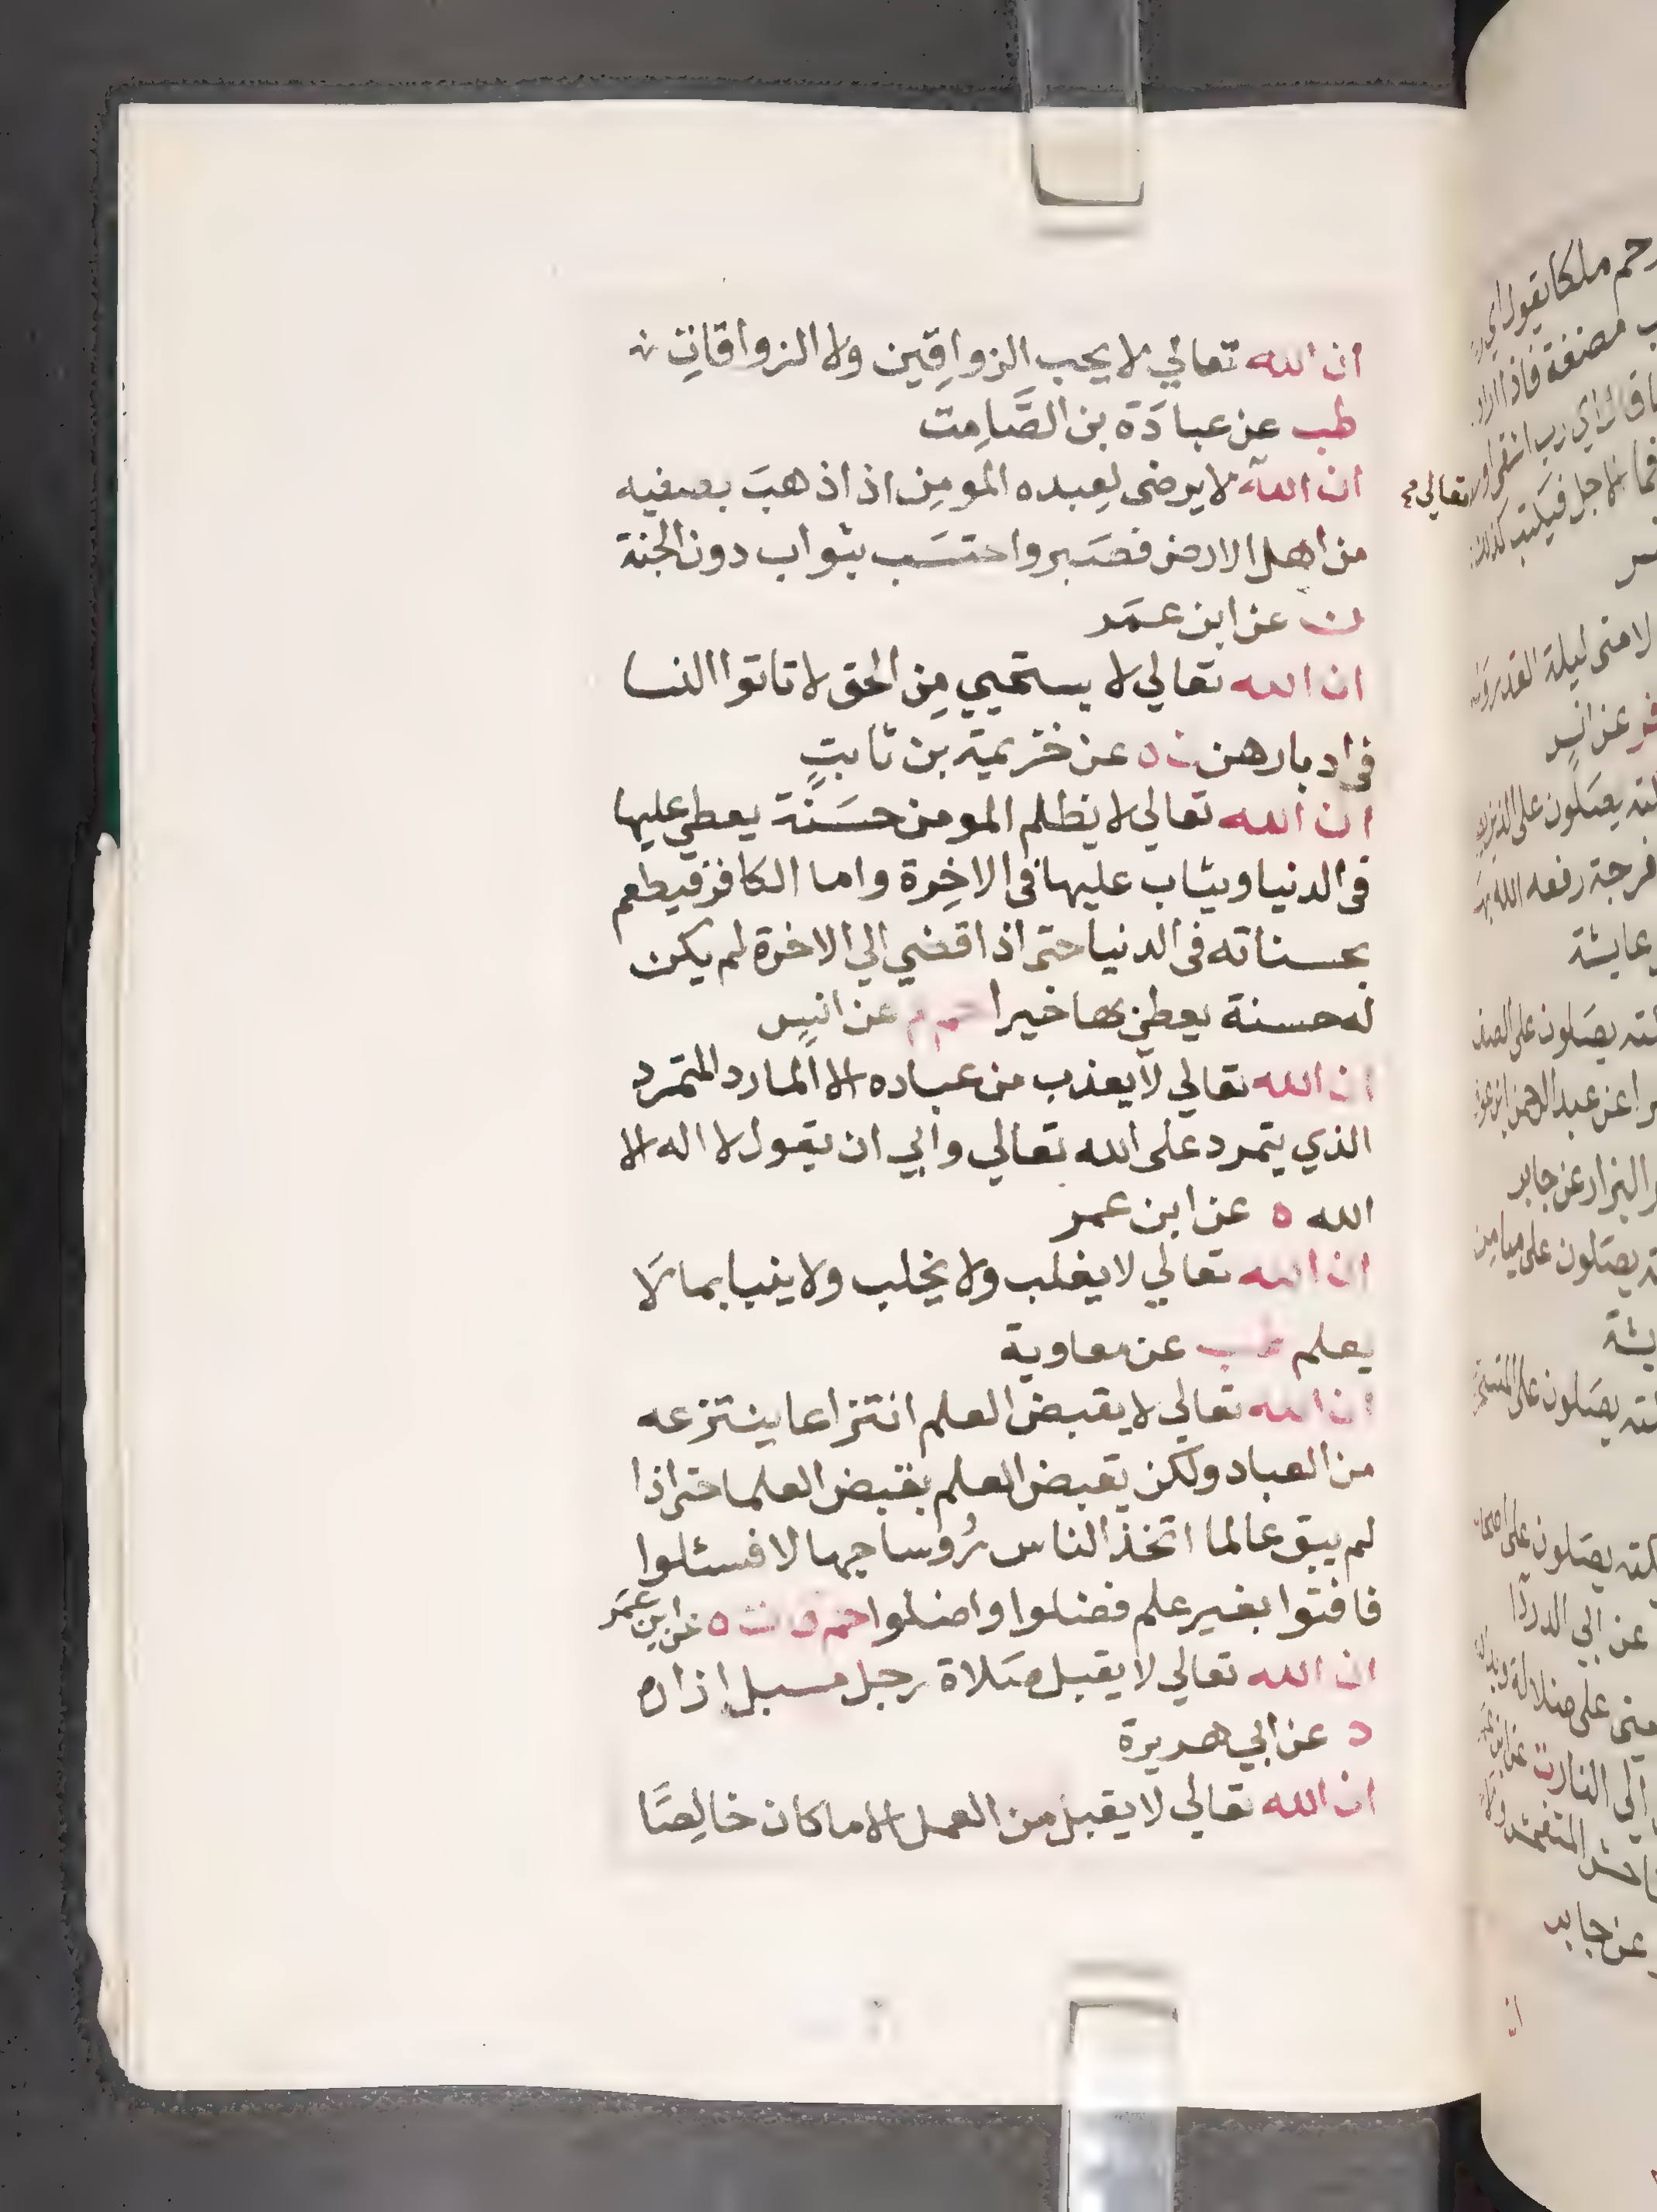 ان الله تعالي لا يحب الزواقين ولا الزواقات
طب عن عبادة بن الصَّامِت
ان الله لا يرضى لعبده المومن اذا ذهبَ بصفيه
تعالي صح
من اهل الارض فصَبر واحتسَب بثواب دون الجنة
ن عن ابن عمَر
ان الله تعالي لا يستحيي مِن الحق لا تاتوا النسا
في ادبارهن ن ه عن خزيمة بن ثابتٍ
ان الله تعالي لا يظلم المومن حسَنة يعطي عليها
في الدنيا ويثاب عليها في الاخِرة واما الكافر فيطعم
بحسناته في الدنيا حتى اذا افضي الي الاخرة لم يكن
له حسنة يعطي بها خيرا حم م عن انسٍ
ان الله تعالي لا يعذب من عباده الا المارد المتمرد
الذي يتمرد على الله تعالي وابي ان يقول لا اله الا
الله ه عن ابن عمر
ان الله تعالي لا يغلب ولا يخلب ولا ينبا بما لَا
يعلم طب عن معاوية
ان الله تعالي لا يقبض العلم انتزاعا ينتزعه
من العباد ولكن يقبض العلم بقبض العلما حتى اذا
لم يبق عالما اتخذ الناس رُوسا جهالا فسئلوا
فافتوا بغير علم فضلوا واضلوا حم ق ت ه عن ابن عمَر
ان الله تعالي لا يقبل صَلاة رجل مسبل ازاره
د عن ابي هريرة
ان الله تعالي لا يقبل من العمل الا ما كان خالِصًا